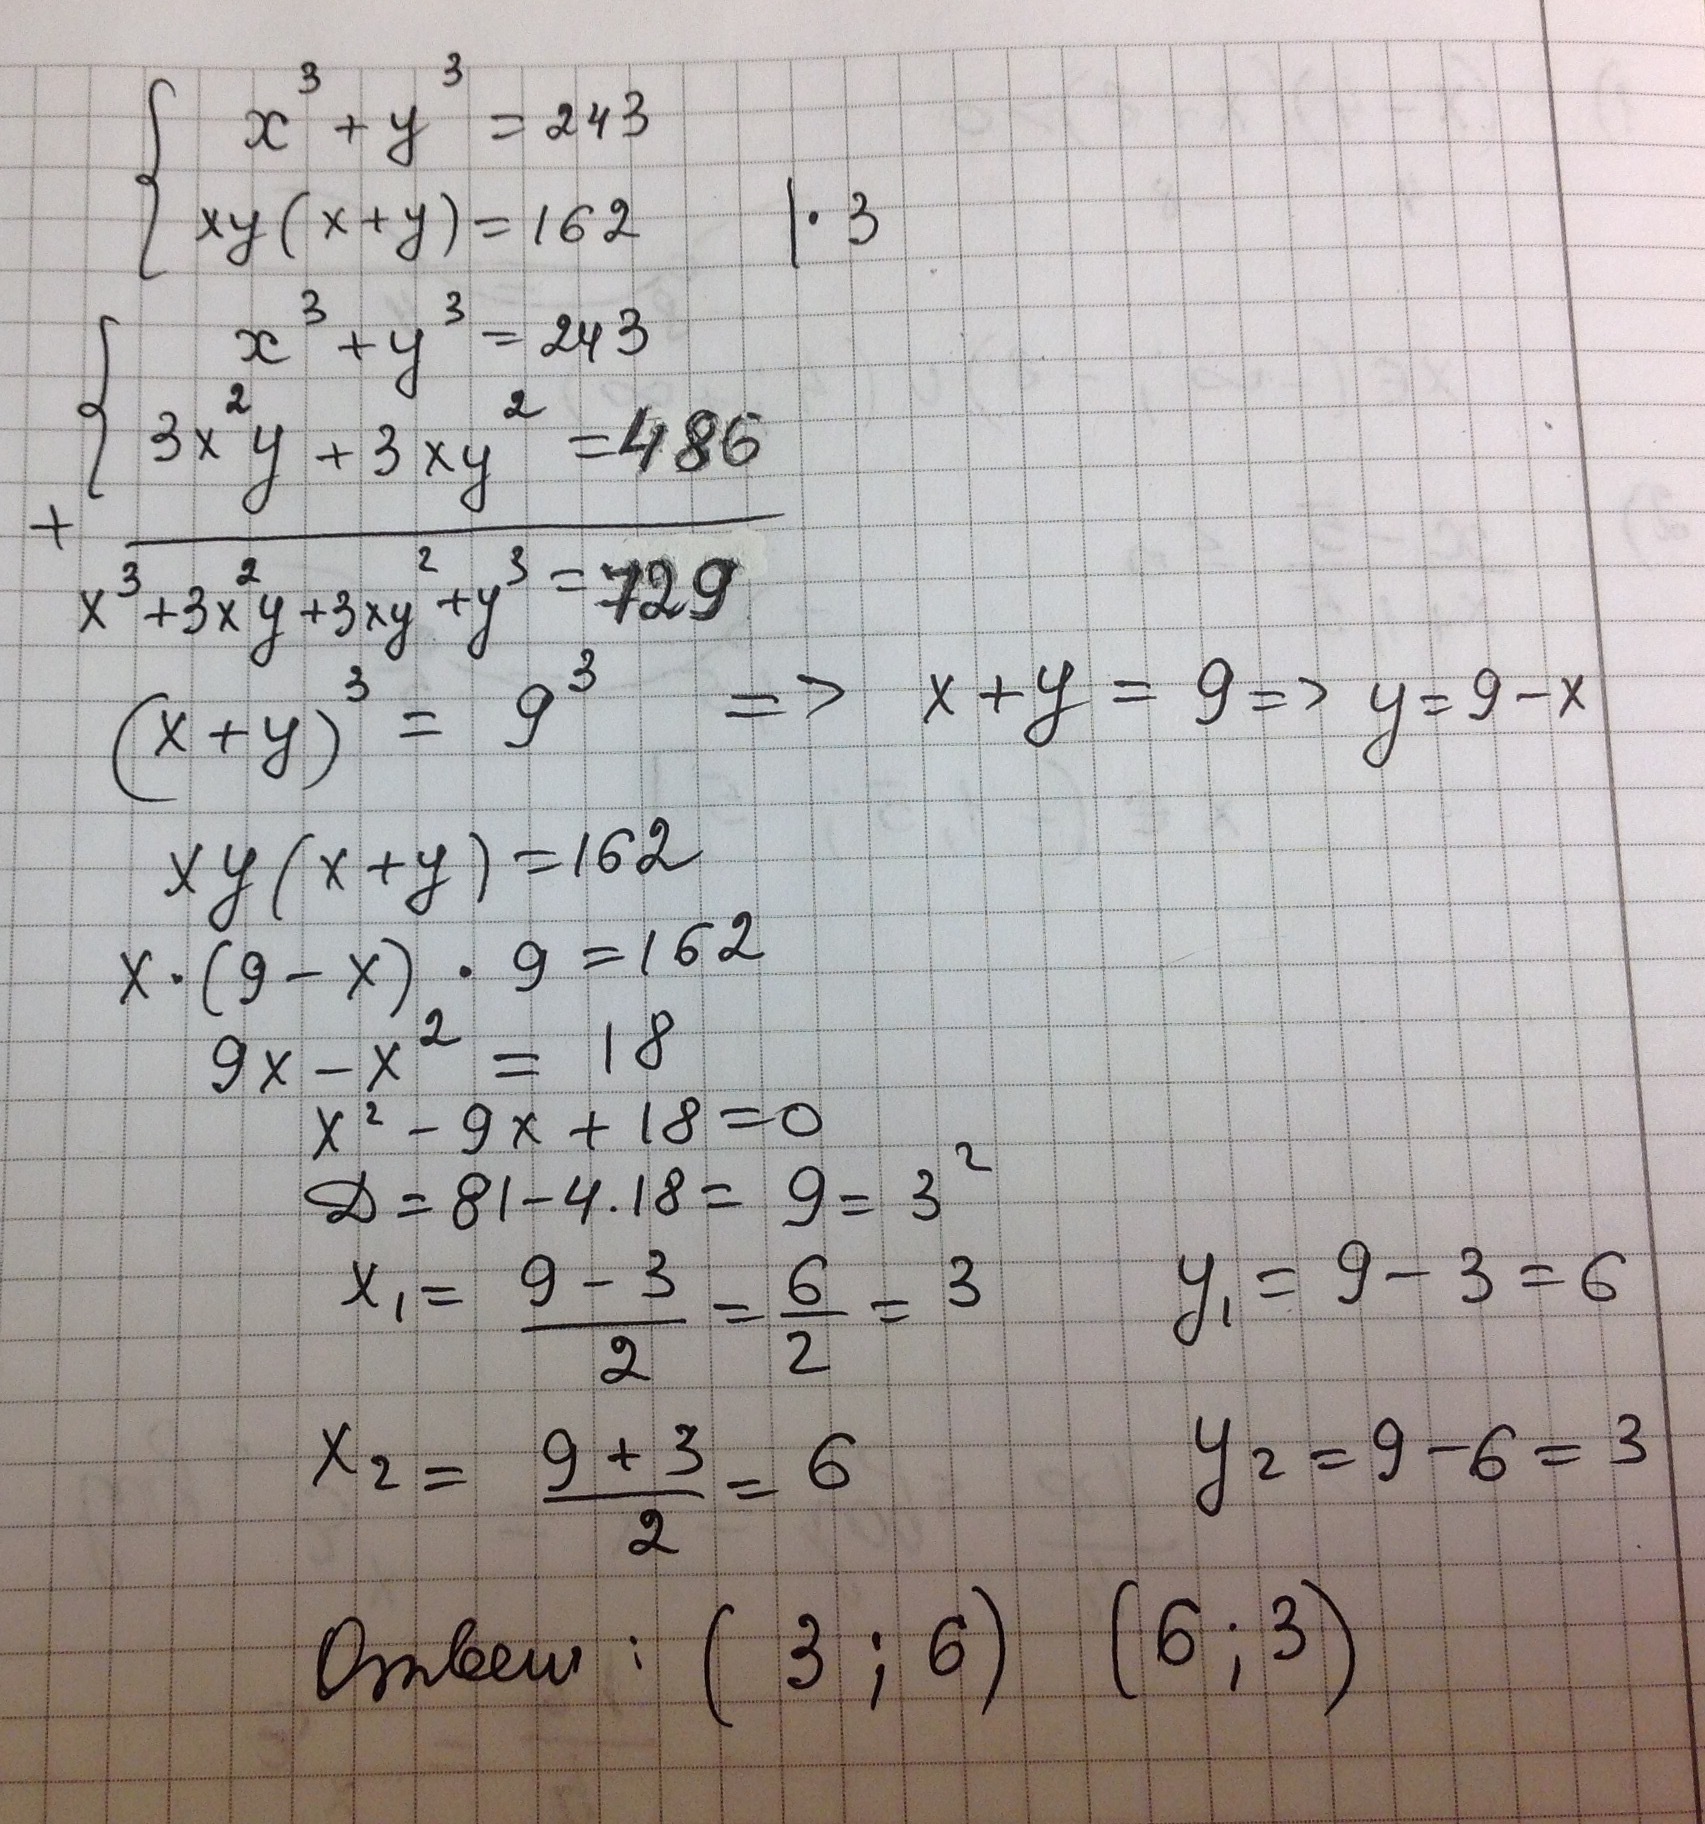 x³ + y³ = 243
xy(x+y) = 162 | · 3
x³ + y³ = 243
3x²y + 3xy² = 486
+
x³ + 3x²y + 3xy² + y³ = 729
(x+y)³ = 9³ => x+y = 9 => y = 9 - x
xy(x+y) = 162
x · (9 - x) · 9 = 162
9x - x² = 18
x² - 9x + 18 = 0
D = 81 - 4.18 = 9 = 3²
x₁ = (9 - 3)/2 = 6/2 = 3 y₁ = 9 - 3 = 6
x₂ = (9 + 3)/2 = 6 y₂ = 9 - 6 = 3
Ответ : (3 ; 6) (6 ; 3)